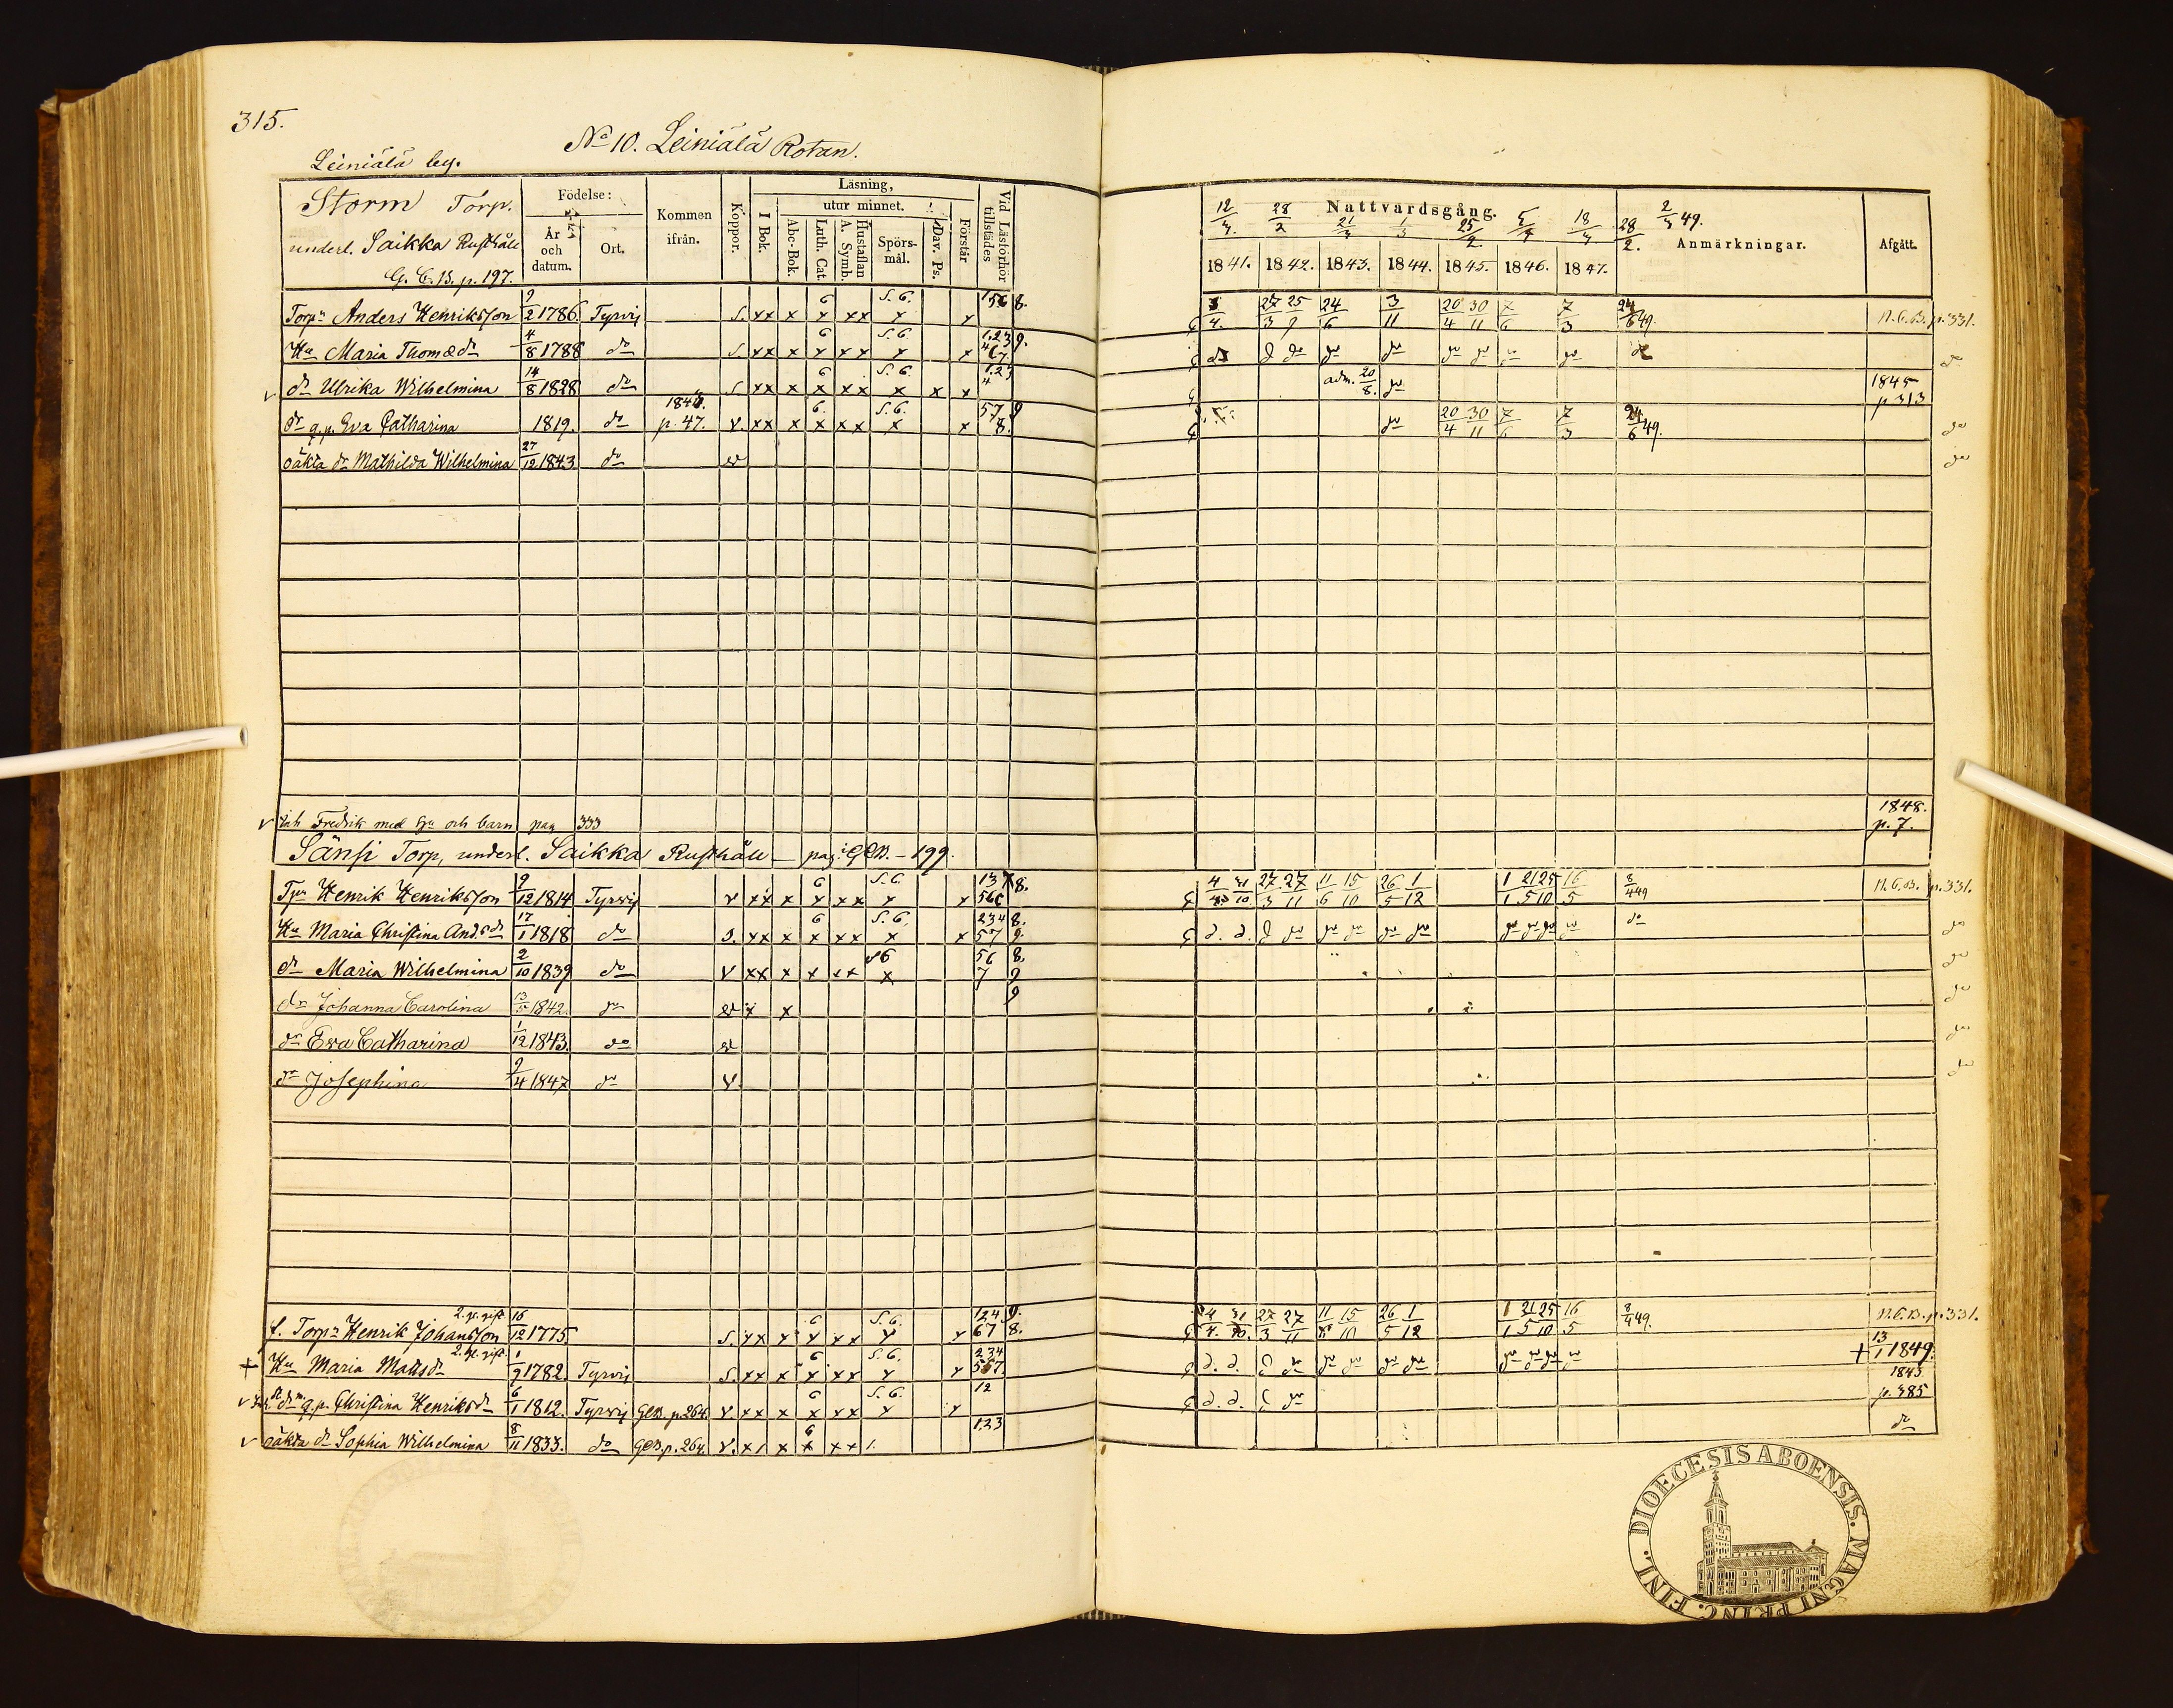 315.
No 10. Leiniälä Rotan.
Leiniälä by.
Storm Torp.
underl. Saikka Rusthåll
G. C. B. p. 197.
Födelse:
År och datum.
Ort.
Kommen ifrån.
Koppor.
Läsning,
I Bok.
utur minnet.
Abc-Bok.
Luth. Cat.
Hustaflan A. Symb.
Spörsmål.
Dav. Ps.
Förstår
Vid Läsförhör tillstädes
Nattvardsgång.
12/4. 28/2 21/3 1/3 25/2 5/4 18/4 28/2. 2/3 49.
1841. 1842. 1843. 1844. 1845. 1846. 1847.
Anmärkningar.
Afgått.
Torpn Anders Henriksson 9/2 1786. Tyrvis S. xx x 6 x xx S. 6. x x 156 8. 27/3 25/9 24/6 3/11 20/4 30/11 7/6 7/3 24/6 49. N. C. B. p. 331.
Hu Maria Thomædr 4/8 1788 do S. xx x 6 x xx S. 6. x x 9. do
dr Ulrika Wilhelmina 14/8 1828 do S. xx x 6 x xx S. 6 x x x 1.23 4 adm. 20/8. do 1845 p 313
dr q.p. Eva Catharina 1819. do p. 47. V. xx x 6. x xx S. 6. x x 57 8. 9 do 20/4 30/11 7/6 7/3 24/6 49. do
oäkta dr Mathilda Wilhelmina 27/12 1843 do do
Fredrik med Hu och barn pag 333 1848. p. 7.
Sänsi Torp, underl. Saikka Rusthåll — pag: GCB. — 199.
Henrik Henriksson 9/12 1814 Tyrvis V xx x 6 x xx S. 6. x x 8. 27/3 27/11 11/6 15/10 26/5 1/12 1/1 21/5 25/10 16/5 8/4 49 N. C. B. p. 331.
Hu Maria Christina And.sdr 17/1 1818 do S. xx x 6 x xx S. 6. x x 234 57 8. 9. d. d. do do do do do do do
dr Maria Wilhelmina 2/10 1839 do V xx x x xx 6 x 56 7 8. 9 do
dr Johanna Carolina 13/5 1842. do x x 9 do
dr Eva Catharina 1/12 1843. do do
dr Josephina 9/4 1847 do V. do
2. g. gift
f. Torpn Henrik Johansson 16/12 1775. S. xx x 6 x xx S. 6. x x 124 67 9. 8. 27/3 27/11 11/6 15/10 26/5 1/12 1/1 21/5 25/10 16/5 8/4 49. N. C. B. p. 331.
2. g. gift.
+ Hu Maria Mattsdr 1/9 1782. Tyrvis S. xx x 6 x xx S. 6. x x 234 557. d. d. do do do do do + 13/1 1849.
q.p. Christina Henriksdr 6/1 1812. Tyrvis GCB. p. 264. V xx x 6 x xx S. 6. x x 12 d. d. do 1843 p. 385
oäkta dr Sophia Wilhelmina 8/11 1833. do GCB. p. 264. V. x x 6 x xx 1. 1.23 do
FINL. DIOECESIS ABOENSIS. MAGNI PRINC.